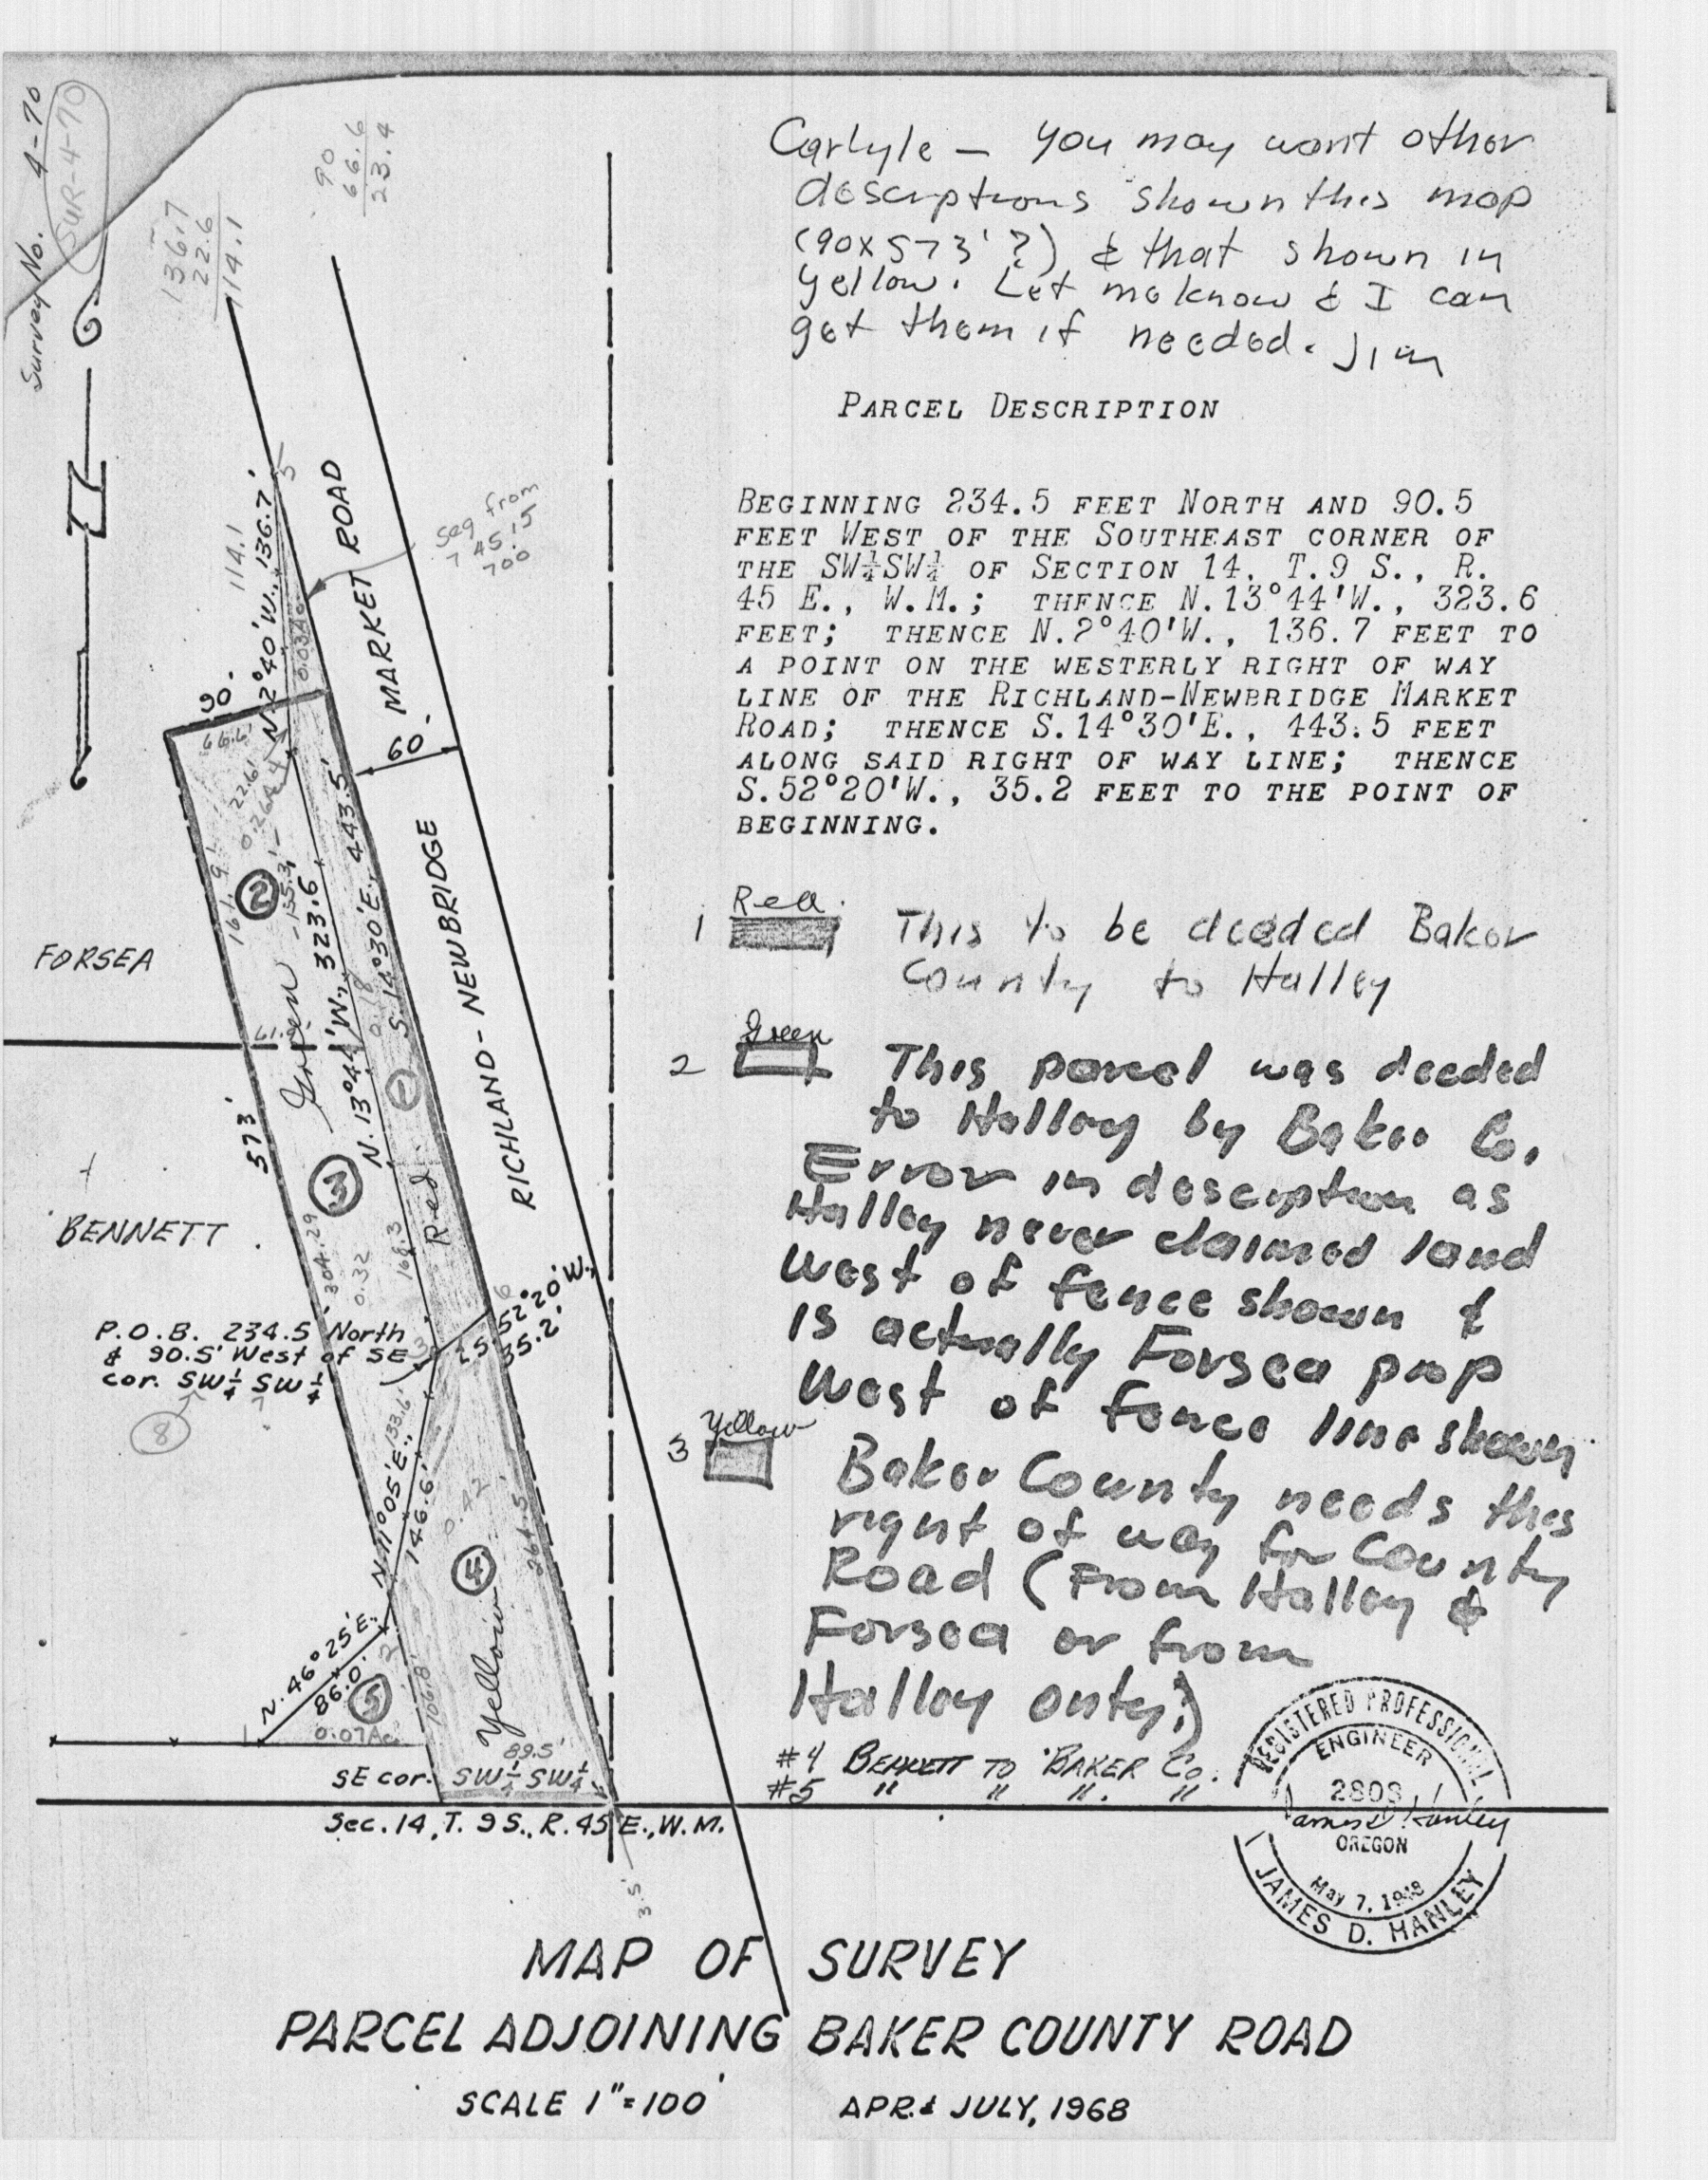 Survey No. 4-70
SUR-4-70
136.7
22.6
114.1
90
66.6
23.4
Carlyle — you may want other
descriptions shown this map
(90x573'?) & that shown in
yellow. Let me know & I can
get them if needed. Jim
PARCEL DESCRIPTION
BEGINNING 234.5 FEET NORTH AND 90.5
FEET WEST OF THE SOUTHEAST CORNER OF
THE SW¼SW¼ OF SECTION 14, T.9 S., R.
45 E., W.M.; THENCE N.13°44'W., 323.6
FEET; THENCE N.2°40'W., 136.7 FEET TO
A POINT ON THE WESTERLY RIGHT OF WAY
LINE OF THE RICHLAND-NEWBRIDGE MARKET
ROAD; THENCE S.14°30'E., 443.5 FEET
ALONG SAID RIGHT OF WAY LINE; THENCE
S.52°20'W., 35.2 FEET TO THE POINT OF
BEGINNING.
1 Red
This to be deeded Baker
County to Halley
2 Green
This parcel was deeded
to Halley by Baker Co.
Error in description as
Halley never claimed land
west of fence shown &
is actually Forsea prop
west of fence line shown
3 Yellow
Baker County needs this
right of way for County
Road (From Halley &
Forsea or from
Halley only?)
#4 BENNETT TO BAKER CO.
#5 " " " "
REGISTERED PROFESSIONAL
ENGINEER
2808
James D. Hanley
OREGON
May 7, 1948
JAMES D. HANLEY
RICHLAND - NEWBRIDGE MARKET ROAD
60'
seg from
74515
700
114.1
N. 2°40'W., 136.7'
5
90'
66.6'
22.6'
4
0.26Ac
161.9'
2
155.3'
N. 13°44'W., 323.6
S. 14°30'E., 443.5'
0.18
1
Green
Red
FORSEA
61.
573'
3
BENNETT
304.29
0.32
168.3
6
S 52°20'W.,
35.2'
P.O.B. 234.5 North
& 90.5' West of SE
cor. SW¼ SW¼
3
8
133.6'
N 11°05'E.,
146.6'
0.42
264.5'
4
Yellow
N. 46°25'E.,
86.0'
2
5
0.07Ac
106.8'
1
89.5'
SE cor. SW¼ SW¼
Sec. 14, T. 9 S., R. 45 E., W.M.
3.5'
MAP OF SURVEY
PARCEL ADJOINING BAKER COUNTY ROAD
SCALE 1"=100' APR. & JULY, 1968